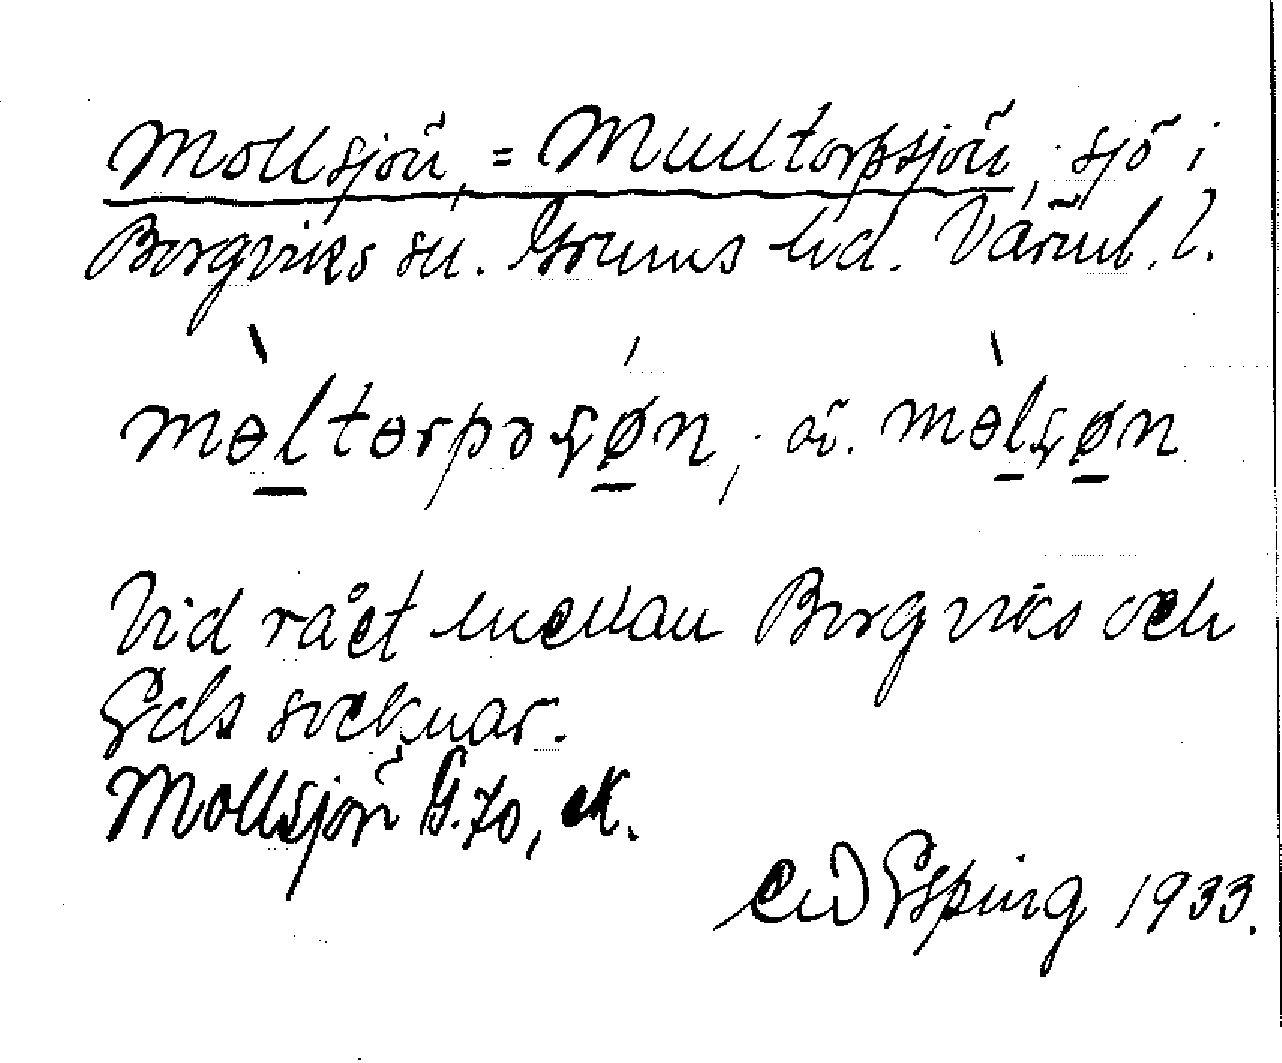 Mollsjön, = Mulltorpsjön, sjö i
Borgviks sn. Grums hd. Värml. l.
mòltorpəʂøn, äv. mòlʂøn
Vid rået mellan Borgviks och
Eds socknar.
Mollsjön G.70, ek.
Esping 1933.